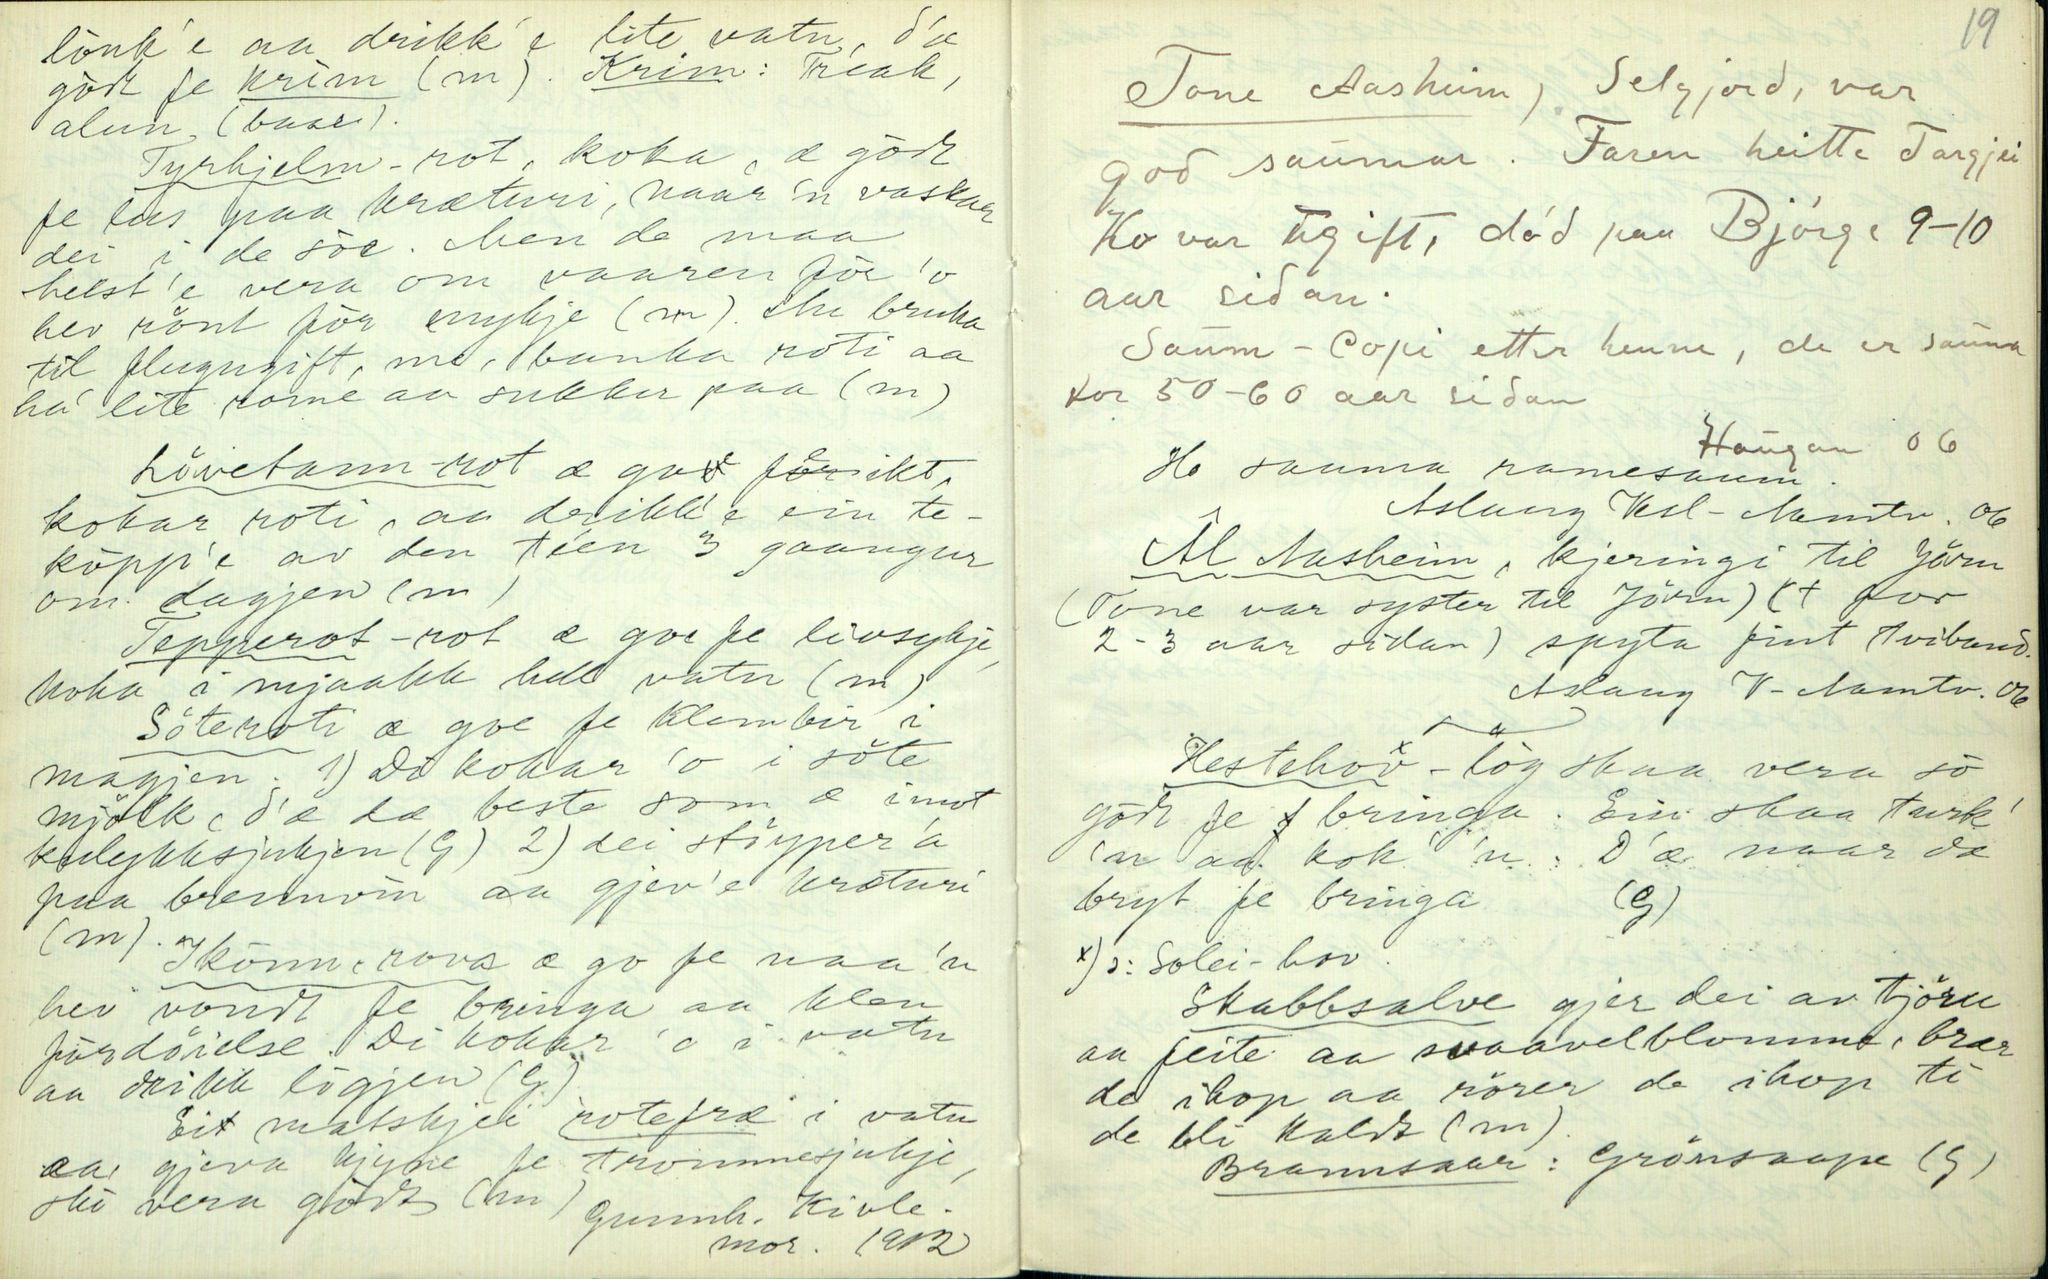 lönk'e aa drikk'e lite vatn, d'æ
gödt fe krim (m). Krim: Treak,
alun, (base).
Tyrhjelm-rot, koka, æ gödt
fe lus paa kræturi, naar 'n vaskar
dei i de söe. Men de maa
helst'e vera om vaaren för 'o
hev rönt för mykje (m). Au bruka
til flugugift, me, banka roti aa
ha lite röme aa sukker paa (m)
Lövetann-rot æ go för ikt,
kokar roti, aa drikk'e ein te-
köpp'e av den téen 3 gaangur
om dagjen (m)
Tepperot-rot æ goe fe livsykje,
koka i mjaakk hell vatn (m)
Söteroti æ goe fe klembir i
magjen. 1) Di kokar 'o i söte
mjölk, d'æ dæ beste som æ imot
kulykksjukjen (G) 2) dei stöyper'a
paa brennvin aa gjev'e kræturi
(m).
Skönn, rova æ go fe naa'n
hev vondt fe bringa aa klen
fördöielse. Di kokar 'o i vatn
aa drikk lögjen (G)
Eit matskjei rotefræ i vatn
aa, gjeva kjyne fe trommesjukje,
ska vera gödt (m)
Gunnh. Kivle.
mor. 1912
19
Tone Aasheim, Selgjord, var
god saumar. Faren heitte Targjei
Ho var ugift, död paa Björge 9-10
aar sidan.
Saum-Copi etter henne, de er sauma
for 50-60 aar sidan
Haugan 06
Ho sauma ramesaum.
Aslaug Vesl-Namtv. 06
Ål Aasheim, kjeringi til Jörn
(Tone var syster til Jörn) († for
2-3 aar sidan) spyta fint tviband.
Aslaug V-Namtv. 06
Hestehov x - lög skaa vera so
gödt fe bringa. Ein skaa turk'
'n aa kok' 'n. D'æ naar dæ
bryt fe bringa (G)
x) ɔ: Solei-hov.
Skabbsalve gjer dei av tjöru
aa feite aa svaavelblomme, bræer
de ihop aa rörer de ihop ti
de bli kaldt (m).
Brannsaar: Grönsaape (G)